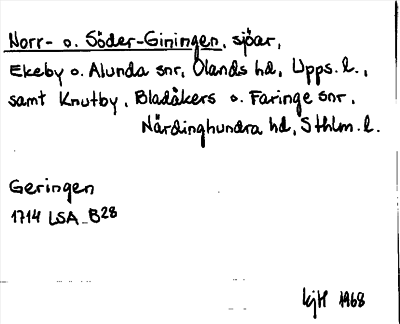 Norr- o. Söder-Giningen, sjöar,
Ekeby o. Alunda snr, Olands hd, Upps. l.,
samt Knutby, Bladåkers o. Faringe snr,
Närdinghundra hd, Sthlm. l.
Geringen
1714 LSA B28
1968